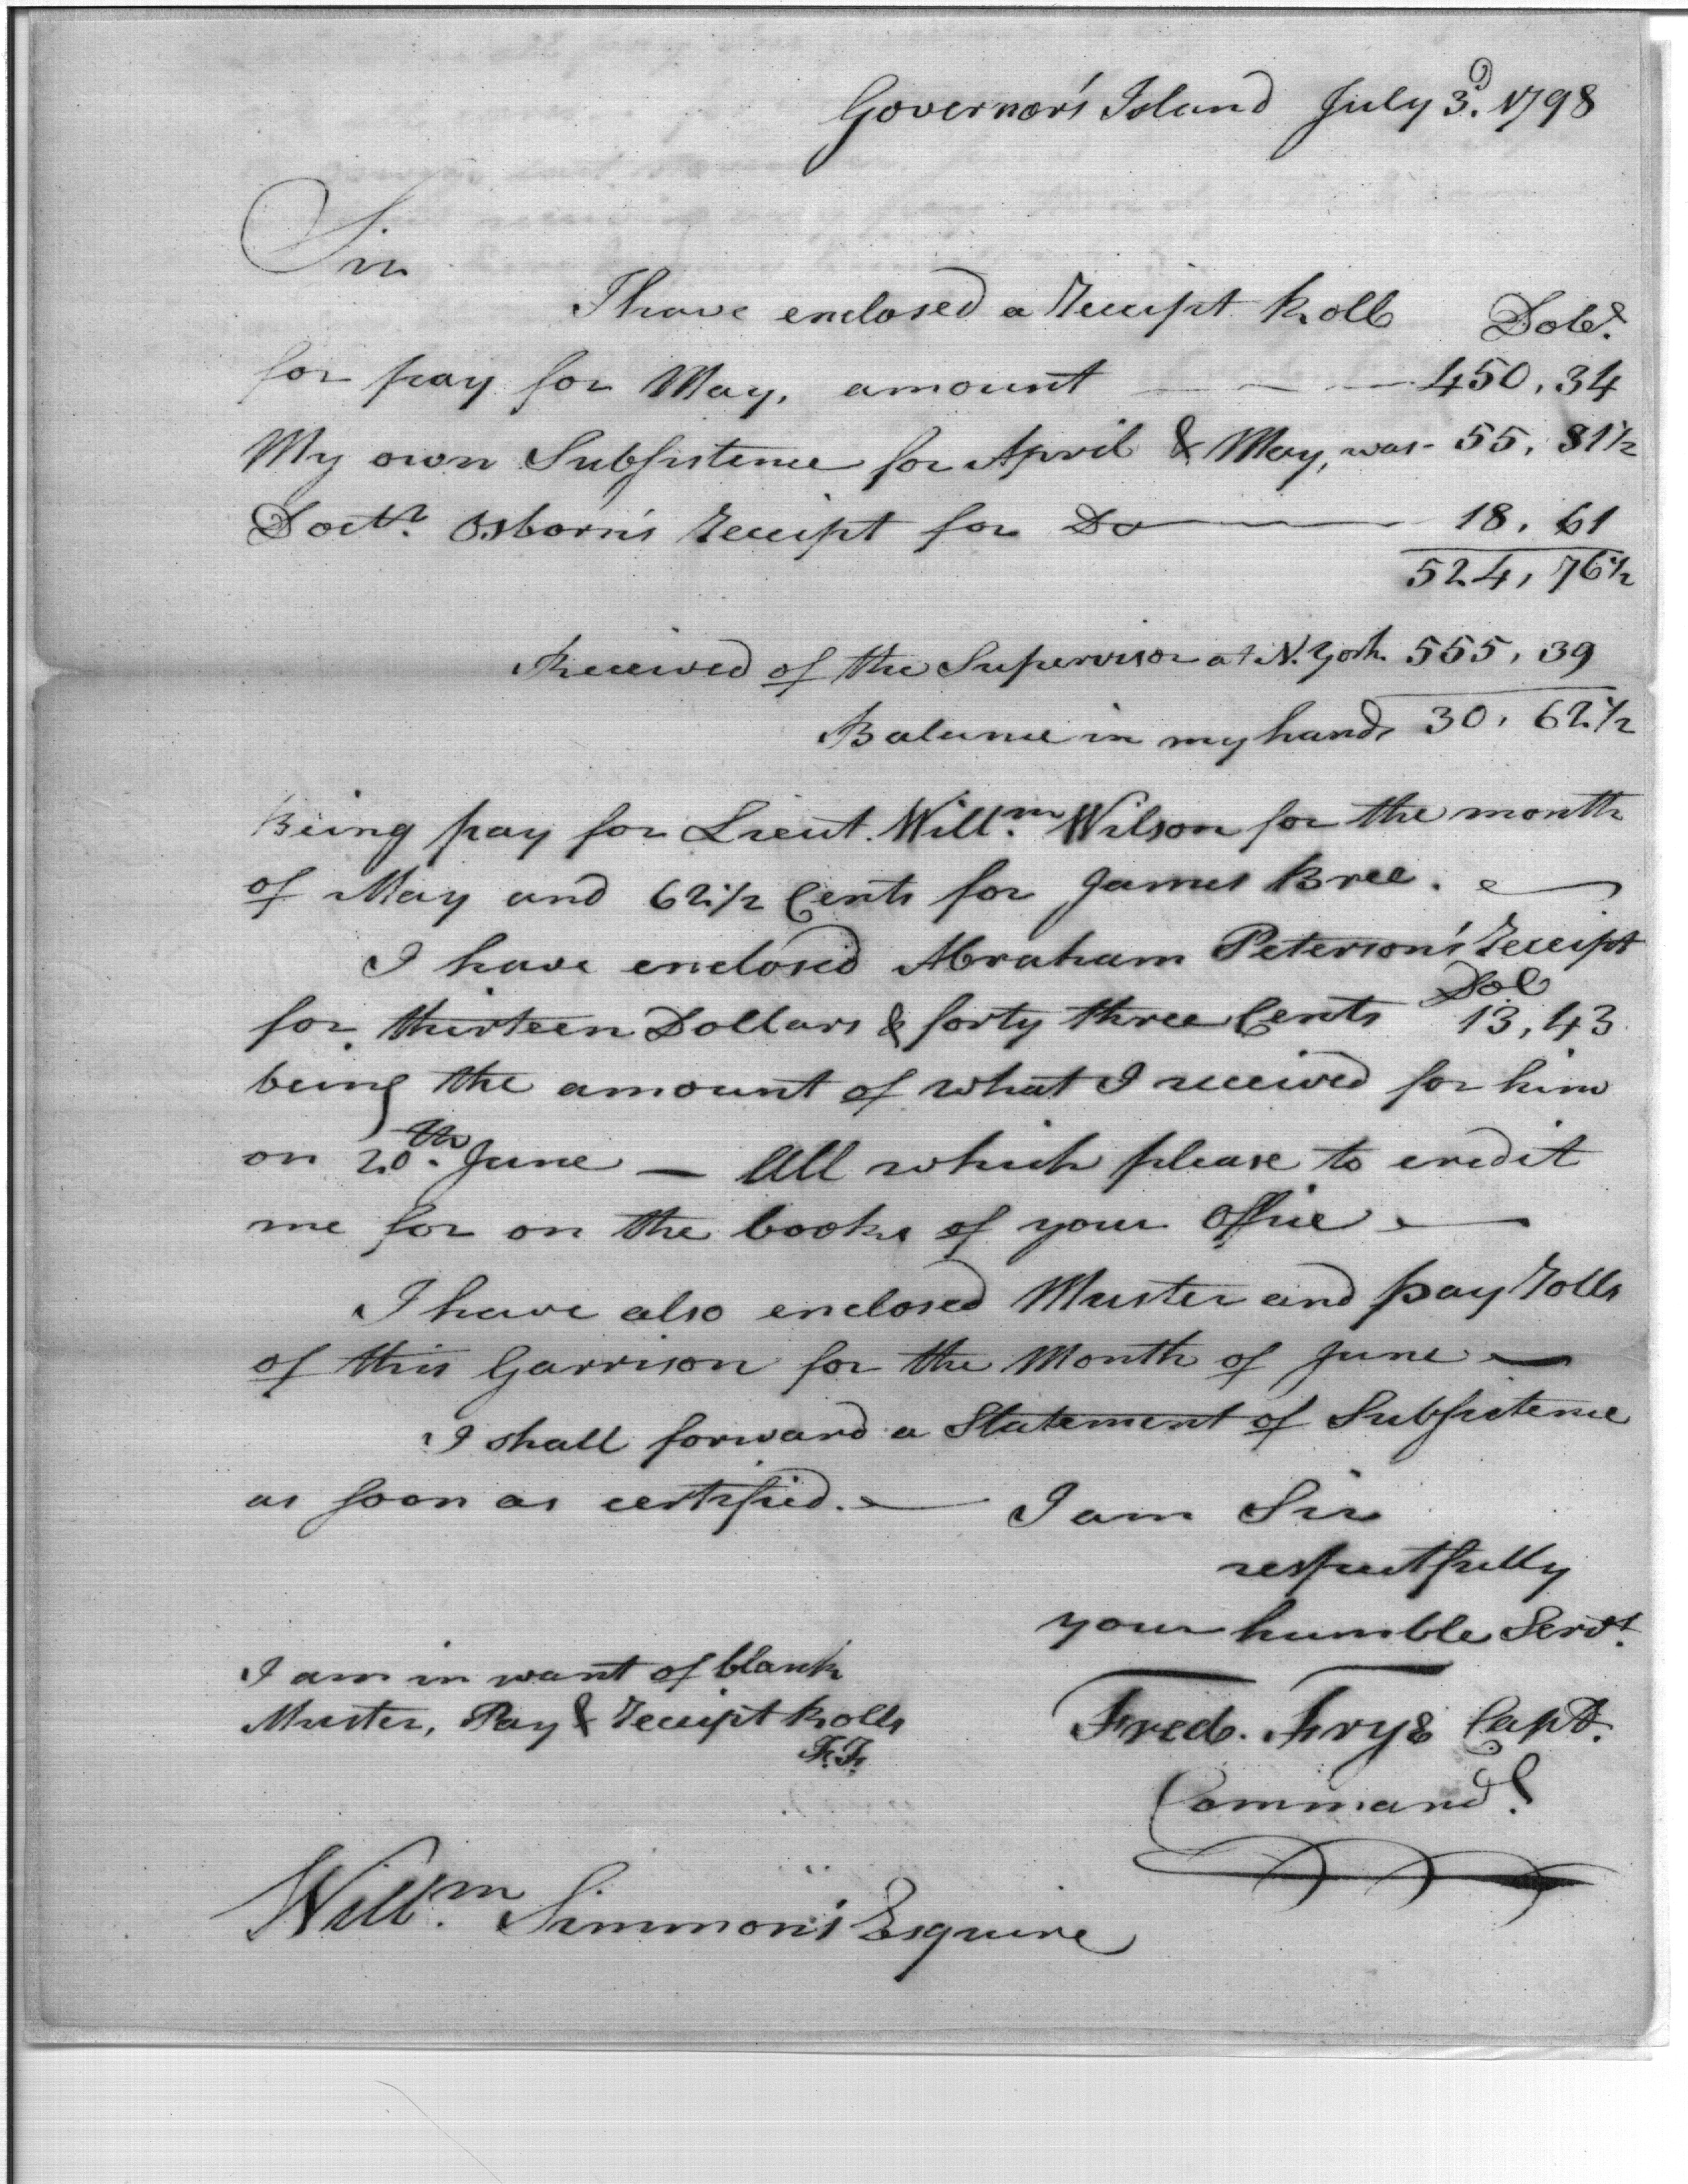 Governor's Island July 3d. 1798
Sir
I have enclosed a receipt Roll Dols.
for pay for May, amount — — — 450, 34
My own Subsistence for April & May, was - 55, 81 1/2
Doctr. Osborn's receipt for Do — 18, 61
524, 76 1/2
Received of the Supervisor at N. York 555, 39
Balance in my hands 30, 62 1/2
Being pay for Lieut. Willm. Wilson for the month
of May and 62 1/2 Cents for James Bree. —
I have enclosed Abraham Peterson's receipt
for thirteen Dollars & forty three Cents Dol 13, 43
being the amount of what I received for him
on 20th. June — All which please to credit
me for on the books of your office —
I have also enclosed Muster and pay rolls
of this Garrison for the Month of June —
I shall forward a Statement of Subsistence
as soon as certified. — I am Sir
respectfully
your humble Servt.
I am in want of blank
Muster, Pay & receipt Rolls
F. F.
Fred. Frye Capt.
Commandt.
Willm. Simmon's Esquire